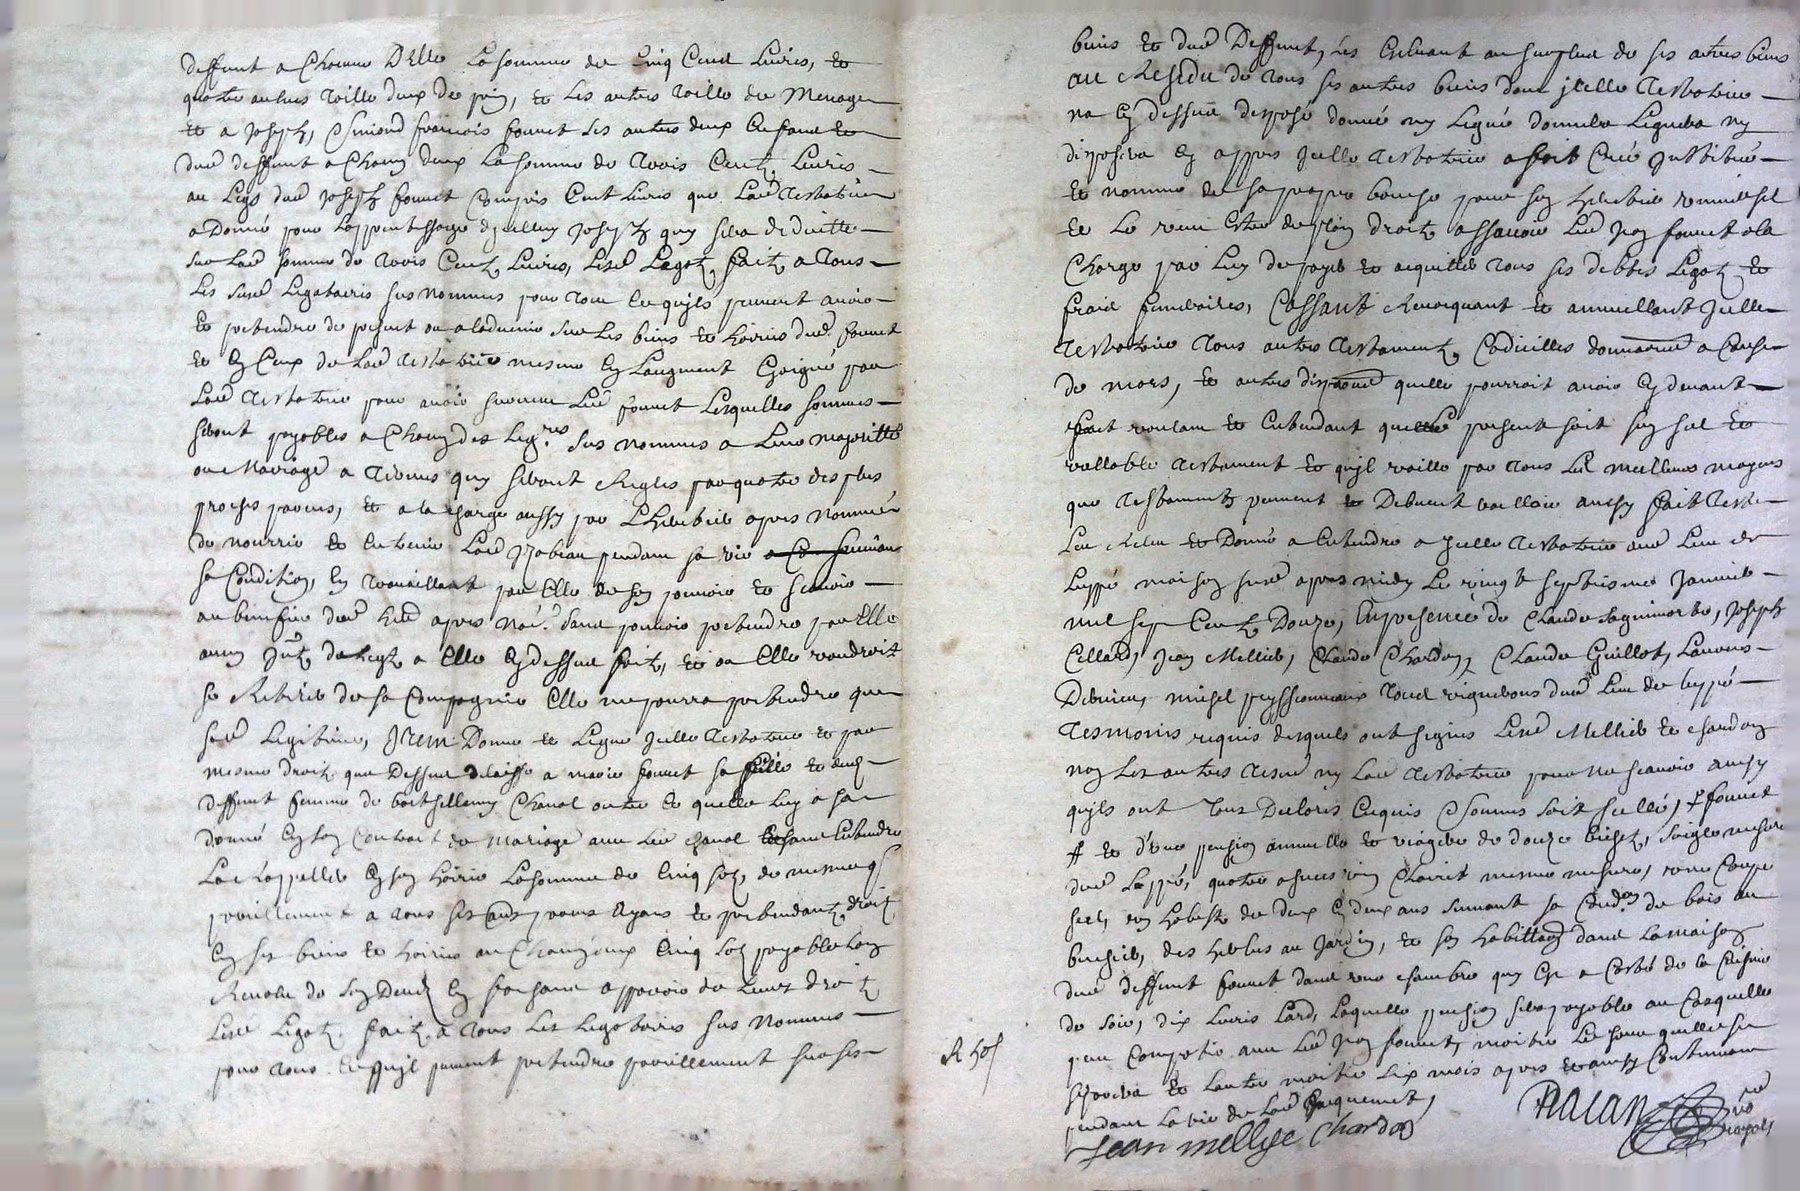 deffunt a Chacune D'Elles La somme de Cinq Cent Livres, et
quatre autres toille deux de fin, et les autres toille de Menage
et a Joseph, Esmond francois fournet ses autres deux Enfans et
dud deffunt a Chacun deux La somme de trois Centz Livres
au Legs dud Joseph fournet Compris Cent Livres que Lad testatrice
a Donné pour L'apprentissage d'jcelluy Joseph quy sera deduitte
sur Lad somme de trois Centz Livres, Lesd Legatz faitz a tous
Les susd Legataires sus nommes pour tout ce quils peuvent avoir
et pretendre de present ou a ladvenir sur Les biens et hoiries dud fournet
et En Ceux de Lad testatrice mesme En Laugment Gaigné par
Lad testatrice pour avoir survecu Led fournet Lesquelles sommes
seront payables a Chacun des Leg.res sus nommes a Leur majoritté
ou Mariage a termes quy seront Regles par quatre des plus
proches parens, et a la charge aussy par L'heritier apres Nommé
de nourrir et entretenir Lad pendant sa vie
sa Condition, En travaillant par Elle de son pouvoir et scavoir
au benefice dud her apres no.é sans pouvoir pretendre par Elle
aucun de Legz a Elle Cy dessus fait, et ou Elle voudroit
se Retirer de sa Compagnie Elle ne pourra pretendre que
sad Legitime, Item Donne et Legue Jcelle testatrice et par
mesme droit que Dessus delaisse a marie fournet sa fille et dud
deffunt femme de barthellemy Chanal outre Ce quelle Luy a
donné En son Contrat de Mariage avec Led chanal sans Entendre
La Rappeller En son hoirie La somme de Cinq solz de mesme
pareillement a tous ses autres Ayans et pretendantz droit
En ses biens et hoiries a Chacun deux Cinq solz payable L'an
Revolu de son Deced En faisant apparoir de Leurs droitz
Lesd Legatz faitz a tous Les Legataires sus Nommes
pour tous Ce quil peuvent pretendre pareillement sur ses
R 50s
biens et dud Deffunt, Les Excluant au surplus de ses autres biens
au Residu de tous ses autres biens dont jcelle testatrice
na Cy dessus disposé donné ny Legué donnera Leguera ny
disposera Cy appres Jcelle testatrice a fait Créé Jnstitué
et nommé de sa propre bouche pour son heritier universel
et Le veut Estre de plain droit assavoir Led Jean fournet a la
Charge par Luy de payer et acquitter tous ses debtes Legatz et
frais funeraires, Cassant Revocquant et annullant Jcelle
testatrice tous autres testamentz, Codicilles donnaõns a Cause
de mort, et autres dispoõns quelle pourroit avoir Cy devant
fait voulant et Entendant que Le present soit son seul et
vallable testament et quil vaille par tous Les meilleurs moyens
que testamentz peuvent et Doivent valloir ainsy fait
Leu Releu et Donné a Entendre a Jcelle testatrice aud Lieu de
Leppé maison susd apres midy Le vingt septiesme Janvier
mil sept Centz Douze, En presence de Claude Joseph
Cellard, Jean Mellier, Claude Chardon, Claude Guillot, Laurens
Debrieu, michel peyssonneaux tous vignerons dud Lieu de Leppé
tesmoins requis desquels ont signés Lesd Mellier et chardon
non Les autres tesnd ny Lad testatrice pour ne scavoir ainsy
quils ont tous Declaré Enquis Et sommés soit scellé, # fournet
# et d'une pension annuelle et viagere de douze bichetz, seigle mesure
dud Leppé, quatre asnees vin Clairet mesme mesure, une Coupe
sel, un habest de deux En deux ans suivant sa Condõn du bois au
buchier, des herbes au Jardin, et son habittaõn dans La maison
dud deffunt fournet dans une chambre quy Est a Costé de la Cuisine
de soir, dix Livres Lard, Laquelle pension sera payable au Cas quelle
peu Compatir avec Led Jean fournet, moitié Led jour quelle se
separera et Lautre moitié six mois apres et ainsy Continuant
pendant La vie de Lad Jaquemet,
Jean mellye Chardon